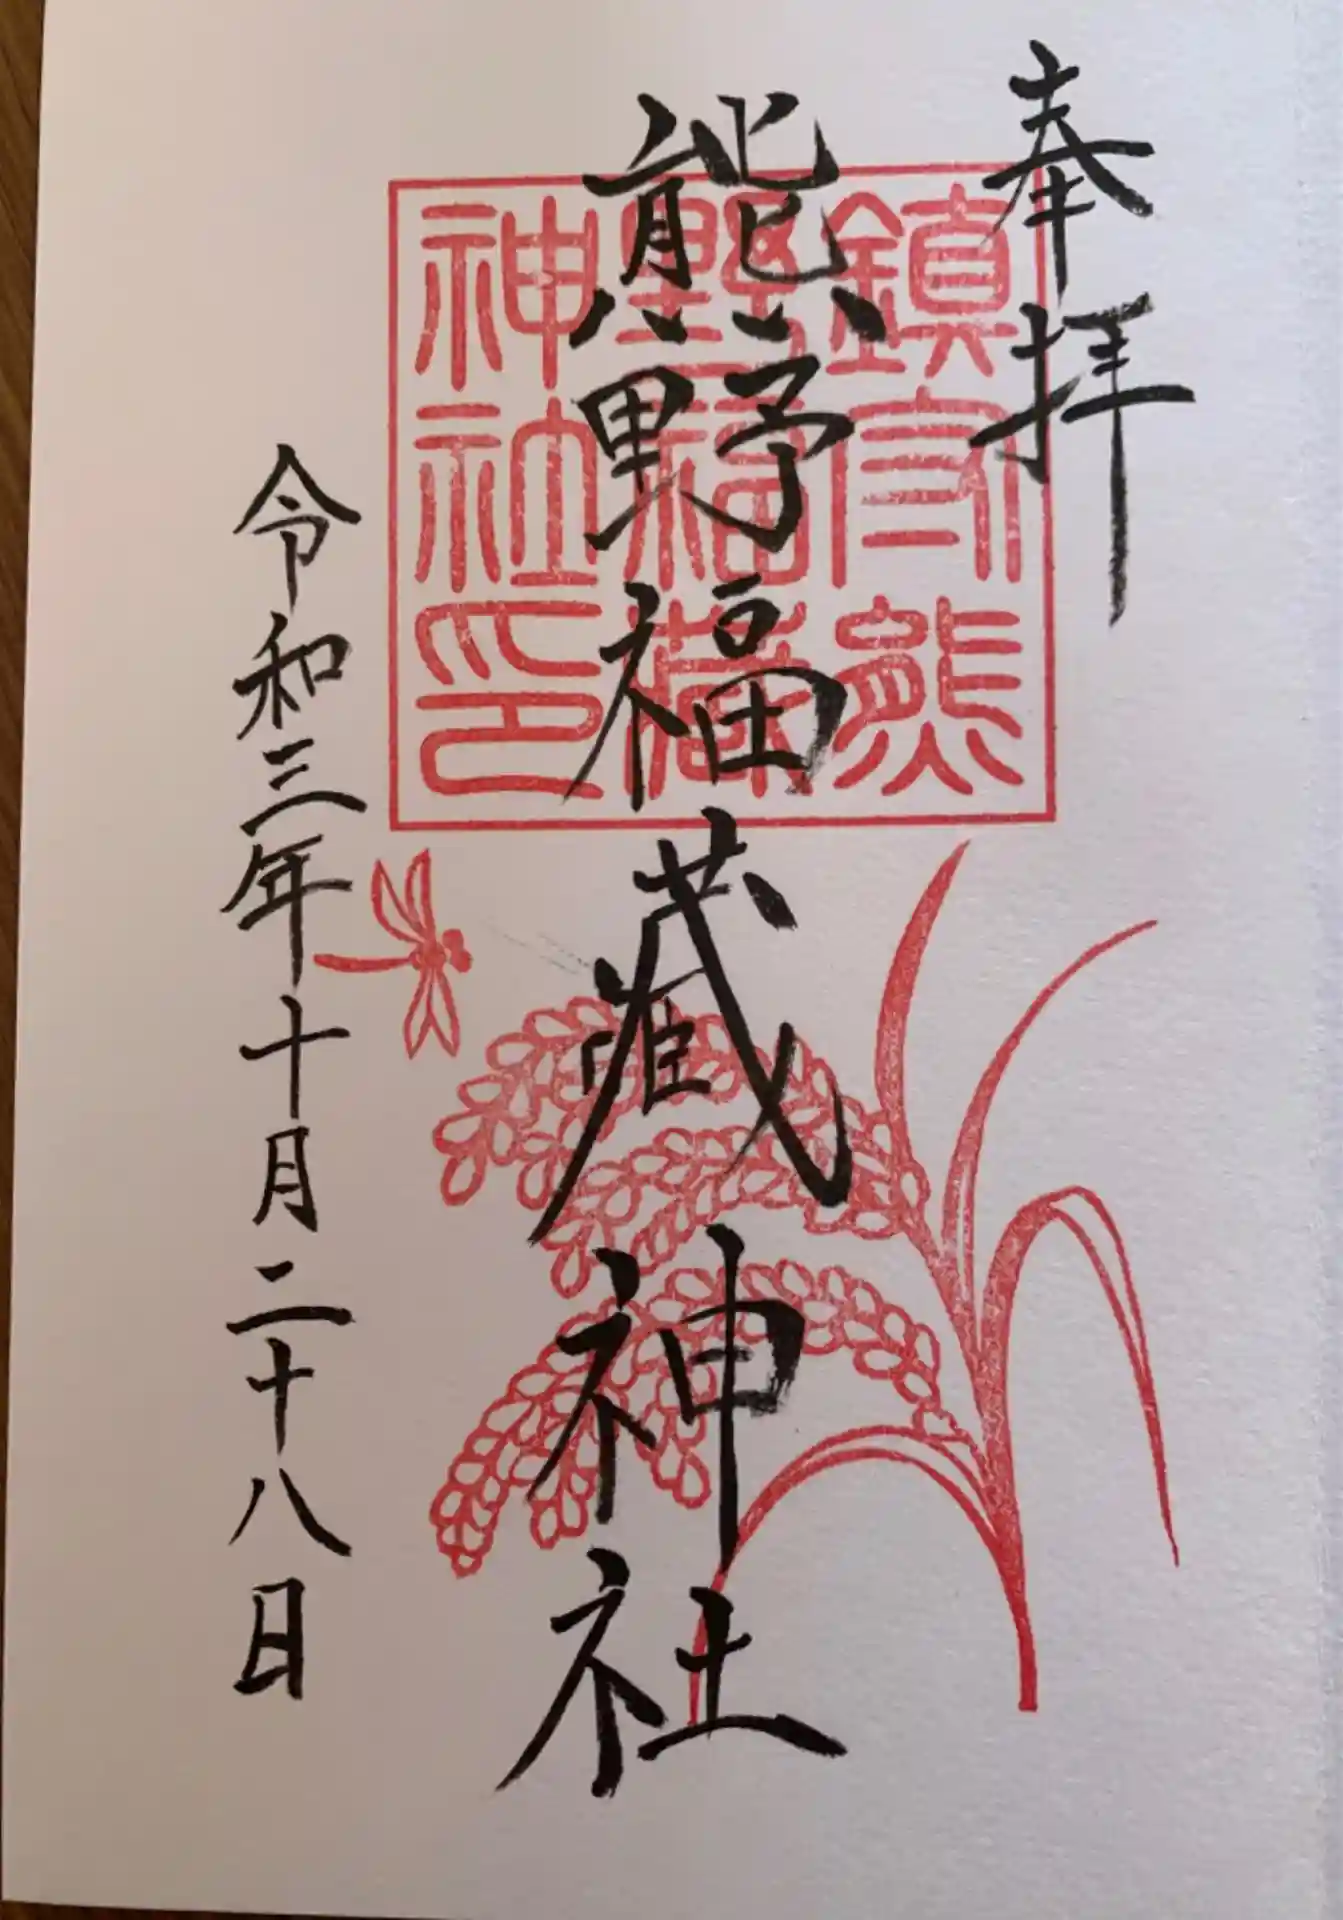 奉拝
熊野福藏神社
令和三年十月二十八日
鎮守熊
野福藏
神社印